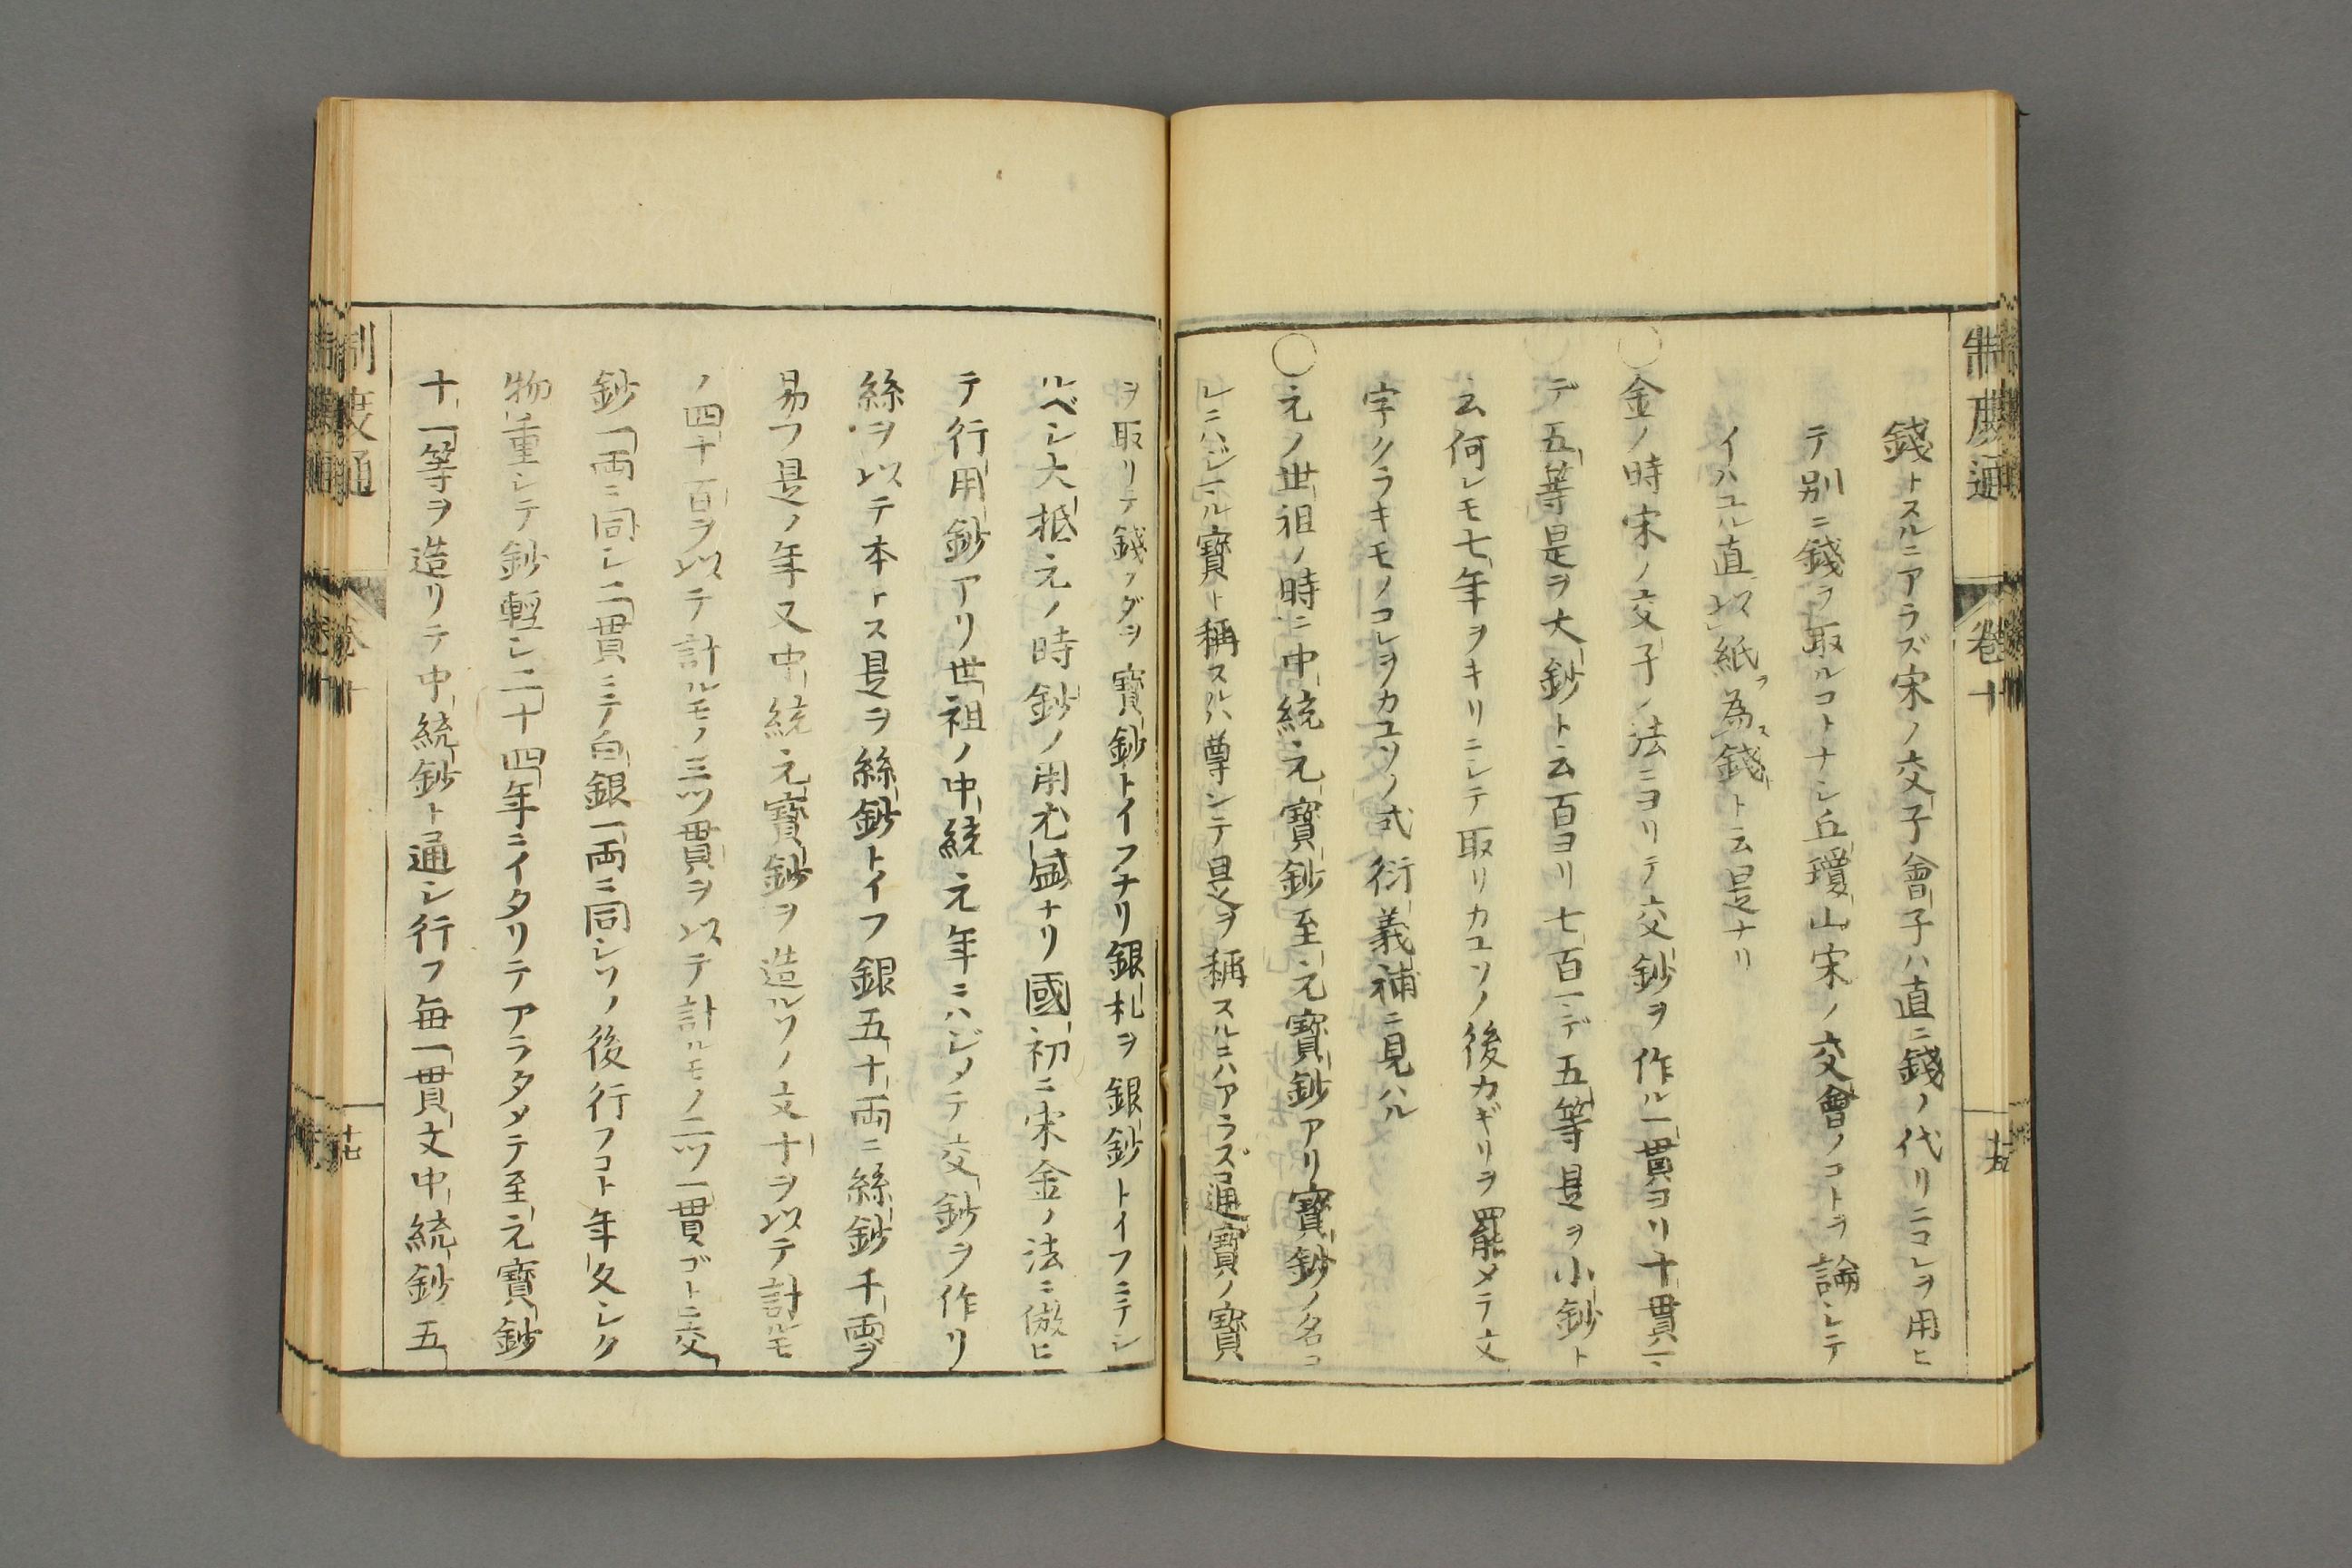 制度通 巻十
錢トスルニアラズ宋ノ交子會子ハ直ニ錢ノ代リニコレヲ用ヒ
テ別ニ錢ヲ取ルコトナシ丘瓊山宋ノ交會ノコトヲ論シテ
イハユル直以紙ヲ為ス錢トト云是ナリ
〇金ノ時宋ノ交子ノ法ニヨリテ交鈔ヲ作ル一貫ヨリ十貫マ
デ五等是ヲ大鈔ト云百ヨリ七百マデ五等是ヲ小鈔ト
云何レモ七年ヲキリニシテ取リカユソノ後カギリヲ罷メテ文
字クラキモノコレヲカユソノ式衍義補ニ見ハル
〇元ノ世祖ノ時ニ中統元寶鈔至元寶鈔アリ寶鈔ノ名コ
レニハジマル寶ト稱スルハ尊ンテ是ヲ稱スルニハアラズ通寶ノ寶
ヲ取リテ錢ノダヲ寶鈔トイフナリ銀札ヲ銀鈔トイフニテシ
ルベシ大抵元ノ時鈔ノ用尤盛ナリ國初ニ宋金ノ法ニ倣ヒ
テ行用鈔アリ世祖ノ中統元年ニハジメテ交鈔ヲ作リ
絲ヲ以テ本トス是ヲ絲鈔トイフ銀五十両ニ絲鈔千両ヲ
易フ是ノ年又中統元寶鈔ヲ造ルソノ文十ヲ以テ計ルモ
ノ四百ヲ以テ計ルモノ三ツ貫ヲ以テ計ルモノ二ツ一貫ゴトニ交
鈔一両ニ同シ二貫ニテ白銀一両ニ同シソノ後行フコト年久シク
物重シテ鈔輕シ二十四年ニイタリテアラタメテ至元寶鈔
十一等ヲ造リテ中統鈔ト通シ行フ毎一貫文中統鈔五
制度通 巻十 十七